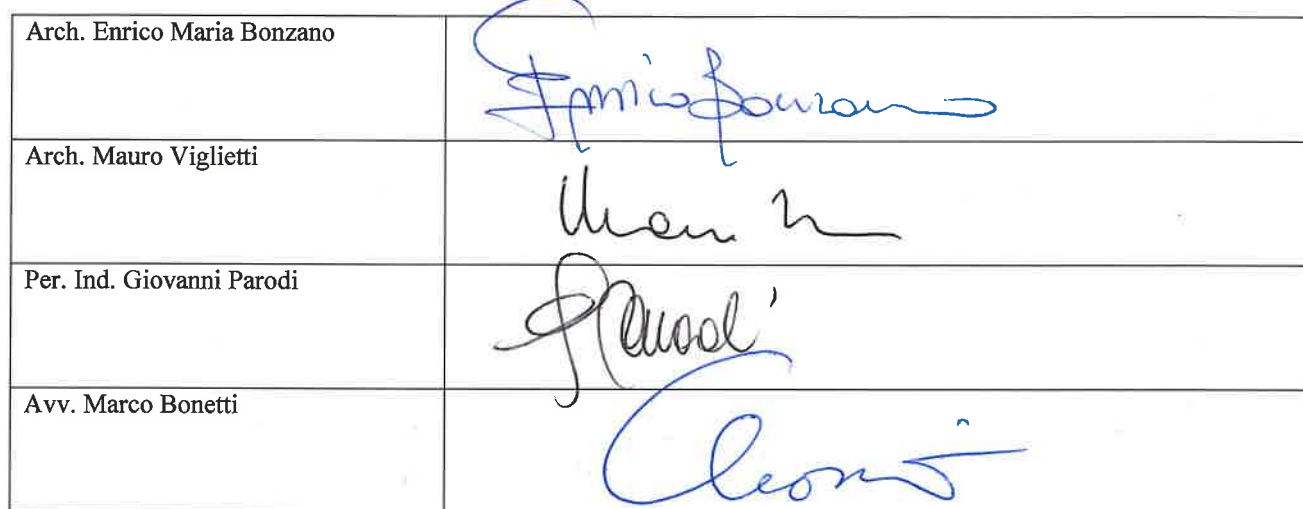 Arch. Enrico Maria Bonzano
Enrico Bonzano
Arch. Mauro Viglietti
Per. Ind. Giovanni Parodi
GParodi
Avv. Marco Bonetti